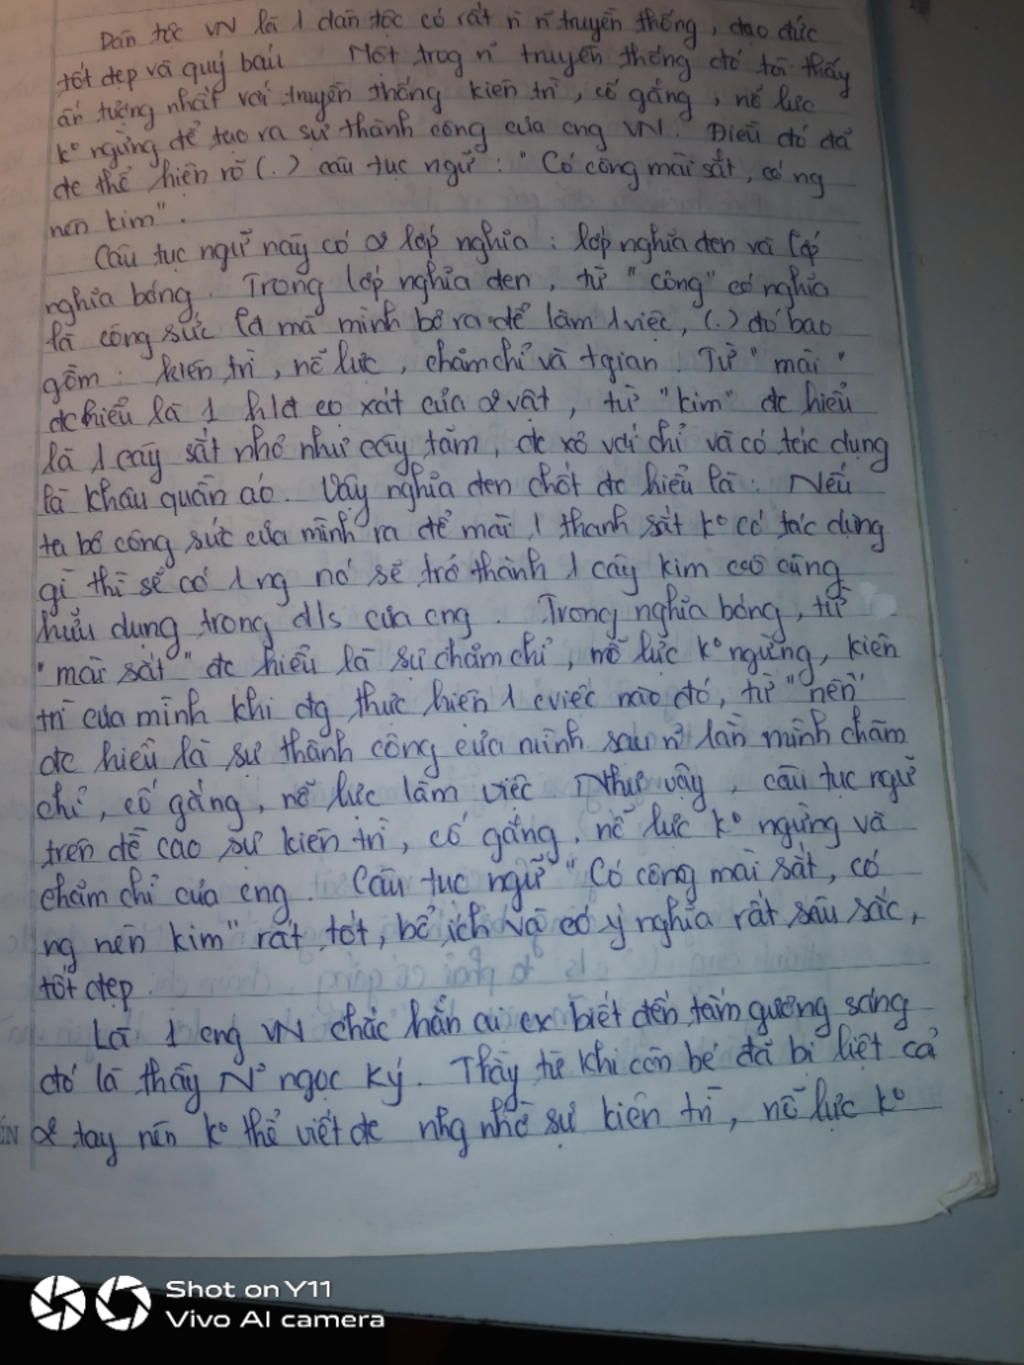 Dân tộc VN là 1 dân tộc có rất n n truyền thống, đạo đức
tốt đẹp và quý báu Một trog n truyền thống đó tôi thấy
ấn tượng nhất với truyền thống kiên trì, cố gắng, nỗ lực
kº ngừng để tạo ra sự thành công của cng VN. Điều đó đã
đc thể hiện rõ (.) câu tục ngữ: "Có công mài sắt, có ng
nên kim".
Câu tục ngữ này có 2 lớp nghĩa: lớp nghĩa đen và lớp
nghĩa bóng. Trong lớp nghĩa đen, từ "công" có nghĩa
là công sức lđ mà mình bỏ ra để làm 1 việc, (.) đó bao
gồm: kiên trì, nỗ lực, chăm chỉ và tgian. Từ "mài"
đc hiểu là 1 hđ cọ xát của 2 vật, từ "kim" đc hiểu
là 1 cây sắt nhỏ như cây tăm, đc xỏ với chỉ và có tác dụng
là khâu quần áo. Vậy nghĩa đen chốt đc hiểu là: Nếu
ta bỏ công sức của mình ra để mài 1 thanh sắt kº có tác dụng
gì thì sẽ có 1 ng nó sẽ trở thành 1 cây kim vô cùng
hữu dụng trong đ/s của cng. Trong nghĩa bóng, từ
"mài sắt" đc hiểu là sự chăm chỉ, nỗ lực kº ngừng, kiên
trì của mình khi đg thực hiện 1 cviệc nào đó, từ "nên"
đc hiểu là sự thành công của mình sau n lần mình chăm
chỉ, cố gắng, nỗ lực làm việc Như vậy, câu tục ngữ
trên đề cao sự kiên trì, cố gắng, nỗ lực kº ngừng và
chăm chỉ của cng. Câu tục ngữ "Có công mài sắt, có
ng nên kim" rất tốt, bổ ích và có ý nghĩa rất sâu sắc,
tốt đẹp
Là 1 cng VN chắc hẳn ai cx biết đến tấm gương sáng
đó là thầy N ngọc Ký. Thầy từ khi còn bé đã bị liệt cả
2 tay nên kº thể viết đc nhg nhờ sự kiên trì, nỗ lực kº
Shot on Y11
Vivo AI camera